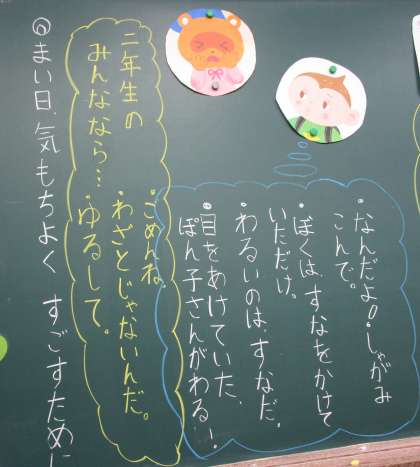 ・なんだよ!しゃがみ
こんで。
・ぼくは、すなをかけて
いただけ。
・わるいのは、すなだ。
・目をあけていた、
ぽん子さんがわるい!
二年生の
みんななら…
・ごめんね。
・わざとじゃないんだ。
・ゆるして。
◎まい日、気もちよく すごすために